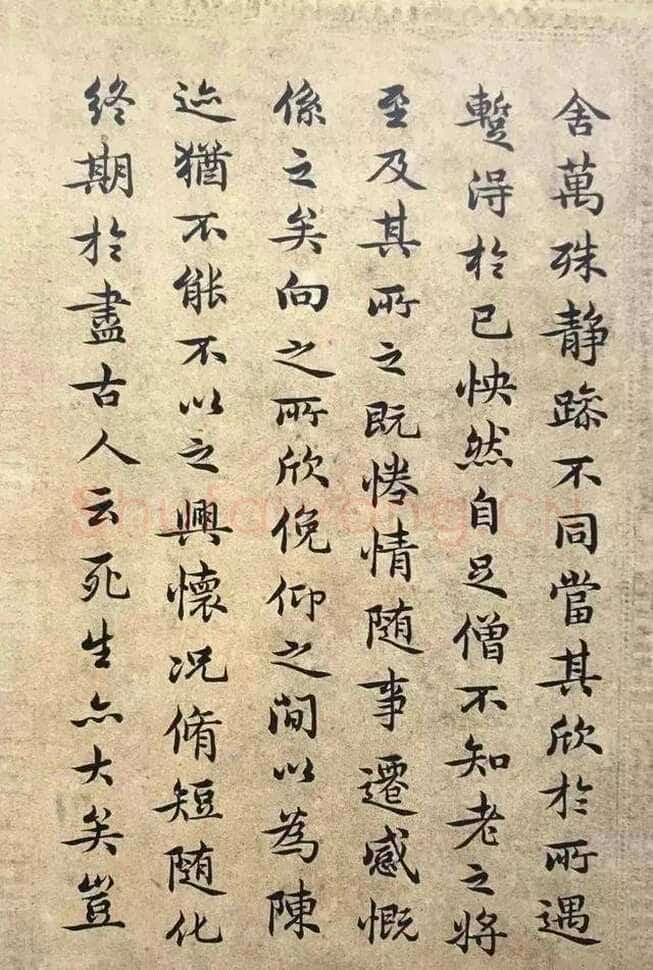 舍萬殊静躁不同當其欣於所遇
蹔得於己怏然自足僧不知老之將
至及其所之既惓情随事遷感慨
係之矣向之所欣俛仰之閒以為陳
迹猶不能不以之興懷况脩短随化
終期於盡古人云死生亦大矣豈